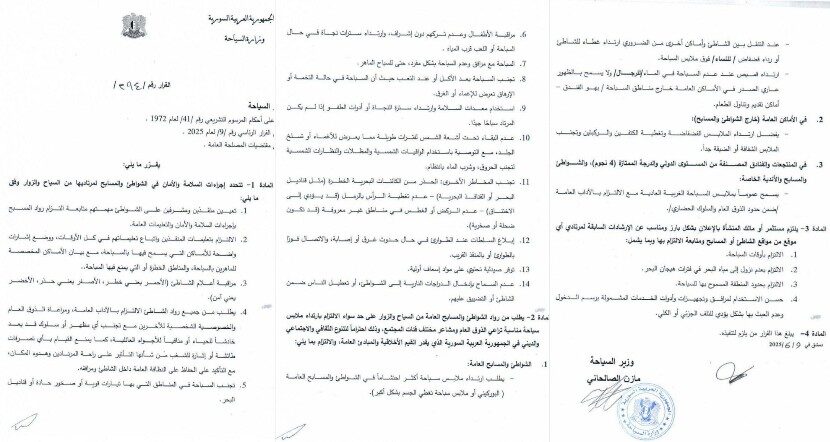 الجمهورية العربية السورية
وزارة السياحة
القرار رقم /٢٩٤/
السياحة
على أحكام المرسوم التشريعي رقم /41/ لعام 1972
القرار الرئاسي رقم /9/ لعام 2025
مقتضيات المصلحة العامة.
يقرر ما يلي:
المادة 1- تتحدد إجراءات السلامة والأمان في الشواطئ والمسابح لمرتاديها من السياح والزوار وفق
ما يلي:
1. تعيين منقذين ومشرفين على الشواطئ مهمتهم متابعة التزام رواد المسبح
بإجراءات الأمان والسلامة والتعليمات العامة.
2. الالتزام بتعليمات المنقذين واتباع تعليماتهم في كل الأوقات، ووضع إشارات
واضحة للأماكن التي يسمح فيها بالسباحة، مع بيان الأماكن المخصصة
للماهرين بالسباحة، والمناطق الخطرة أو التي يمنع فيها السباحة.
3. مراقبة أعلام الشواطئ (الأحمر يعني خطر، الأصفر يعني حذر، الأخضر
يعني آمن).
4. يطلب من جميع رواد الشواطئ الالتزام بالآداب العامة، ومراعاة الذوق العام
والخصوصية الشخصية للآخرين مع تجنب أي مظهر أو سلوك قد يعد
خادشاً للحياء، أو منافياً للأجواء العائلية، كما يمنع القيام بأي تصرفات
طائشة أو إثارة للشغب من شأنها التأثير على راحة المرتادين وهدوء المكان،
مع التأكيد على الحفاظ على النظافة العامة داخل الشاطئ ومرافقه.
5. تجنب السباحة في المناطق التي بها تيارات قوية أو صخور حادة أو قناديل
البحر.
6. مراقبة الأطفال وعدم تركهم دون إشراف، وارتداء سترات نجاة في حال
السباحة أو اللعب قرب المياه.
7. السباحة مع مرافق وعدم السباحة بشكل مفرد، حتى للسباح الماهر.
8. تجنب السباحة بعد الأكل أو عند التعب حيث أن السباحة في حالة التخمة أو
الإرهاق تعرض للإغماء أو الغرق.
9. استخدام معدات السلامة وارتداء سترة للنجاة أو أدوات الطفو إذا لم يكن
المرتاد سباحاً جيداً.
10. عدم البقاء تحت أشعة الشمس لفترات طويلة مما يعرض للإغماء أو تسلخ
الجلد، مع التوصية باستخدام الواقيات الشمسية والمظلات والنظارات الشمسية
لتجنب الحروق، وشرب الماء بانتظام.
11. تجنب المخاطر الأخرى: الحذر من الكائنات البحرية الخطرة (مثل قناديل
البحر أو القنافذ البحرية) – عدم تغطية الرأس بالرمل (قد يؤدي إلى
الاختناق) – عدم الركض أو الغطس في مناطق غير معروفة (قد تكون
ضحلة أو صخرية)
12. إبلاغ السلطات عند الطوارئ في حال حدوث غرق أو إصابة، والاتصال فوراً
بالطوارئ أو بالمنقذ القريب.
13. توفر صيدلية تحتوي على مواد إسعاف أولية.
14. عدم السماح بإدخال الدراجات النارية إلى الشواطئ، أو تخطيط الناس ضمن
الشاطئ أو التضييق عليهم.
المادة 2- يطلب من رواد الشواطئ والمسابح العامة من السياح والزوار على حد سواء الالتزام بارتداء ملابس
سباحة مناسبة تراعي الذوق العام ومشاعر مختلف فئات المجتمع، وذلك احتراماً للتنوع الثقافي والاجتماعي
والديني في الجمهورية العربية السورية الذي يقدر القيم الأخلاقية والمبادئ العامة، والالتزام بما يلي:
1. الشواطئ والمسابح العامة:
– يطلب ارتداء ملابس سباحة أكثر احتشاماً في الشواطئ والمسابح العامة
(البوركيني أو ملابس سباحة تغطي الجسم بشكل أكبر).
– عند التنقل بين الشاطئ وأماكن أخرى من الضروري ارتداء غطاء للشاطئ
أو رداء فضفاض /للنساء/ فوق ملابس السباحة.
– ارتداء القميص عند عدم السباحة في الماء /للرجال/ ولا يسمح بالظهور
عاري الصدر في الأماكن العامة خارج مناطق السباحة / بهو الفندق –
أماكن تقديم وتناول الطعام.
2. في الأماكن العامة (خارج الشواطئ والمسابح):
– يفضل ارتداء الملابس الفضفاضة وتغطية الكتفين والركبتين وتجنب
الملابس الشفافة أو الضيقة جداً.
3. في المنتجعات والفنادق المصنفة من المستوى الدولي والدرجة الممتازة (4 نجوم)، والشواطئ
والمسابح والأندية الخاصة:
– يسمح عموماً بملابس السباحة الغربية العادية مع الالتزام بالآداب العامة
/ضمن حدود الذوق العام والسلوك الحضاري/.
المادة 3- يلتزم مستثمر أو مالك المنشأة بالإعلان بشكل بارز ومناسب عن الإرشادات السابقة لمرتادي أي
موقع من مواقع الشاطئ أو المسابح ومتابعة الالتزام بها وبما يشمل:
1. الالتزام بأوقات السباحة.
2. الالتزام بعدم نزول إلى مياه البحر في فترات هيجان البحر.
3. الالتزام بحدود المنطقة المسموح بها للسباحة.
4. حسن الاستخدام لمرافق وتجهيزات وأدوات الخدمات المشمولة برسم الدخول
وعدم العبث بها بشكل يؤدي للتلف الجزئي أو الكلي.
المادة 4- يبلغ هذا القرار من يلزم لتنفيذه.
دمشق في 9/6/2025
وزير السياحة
مازن الصالحاني